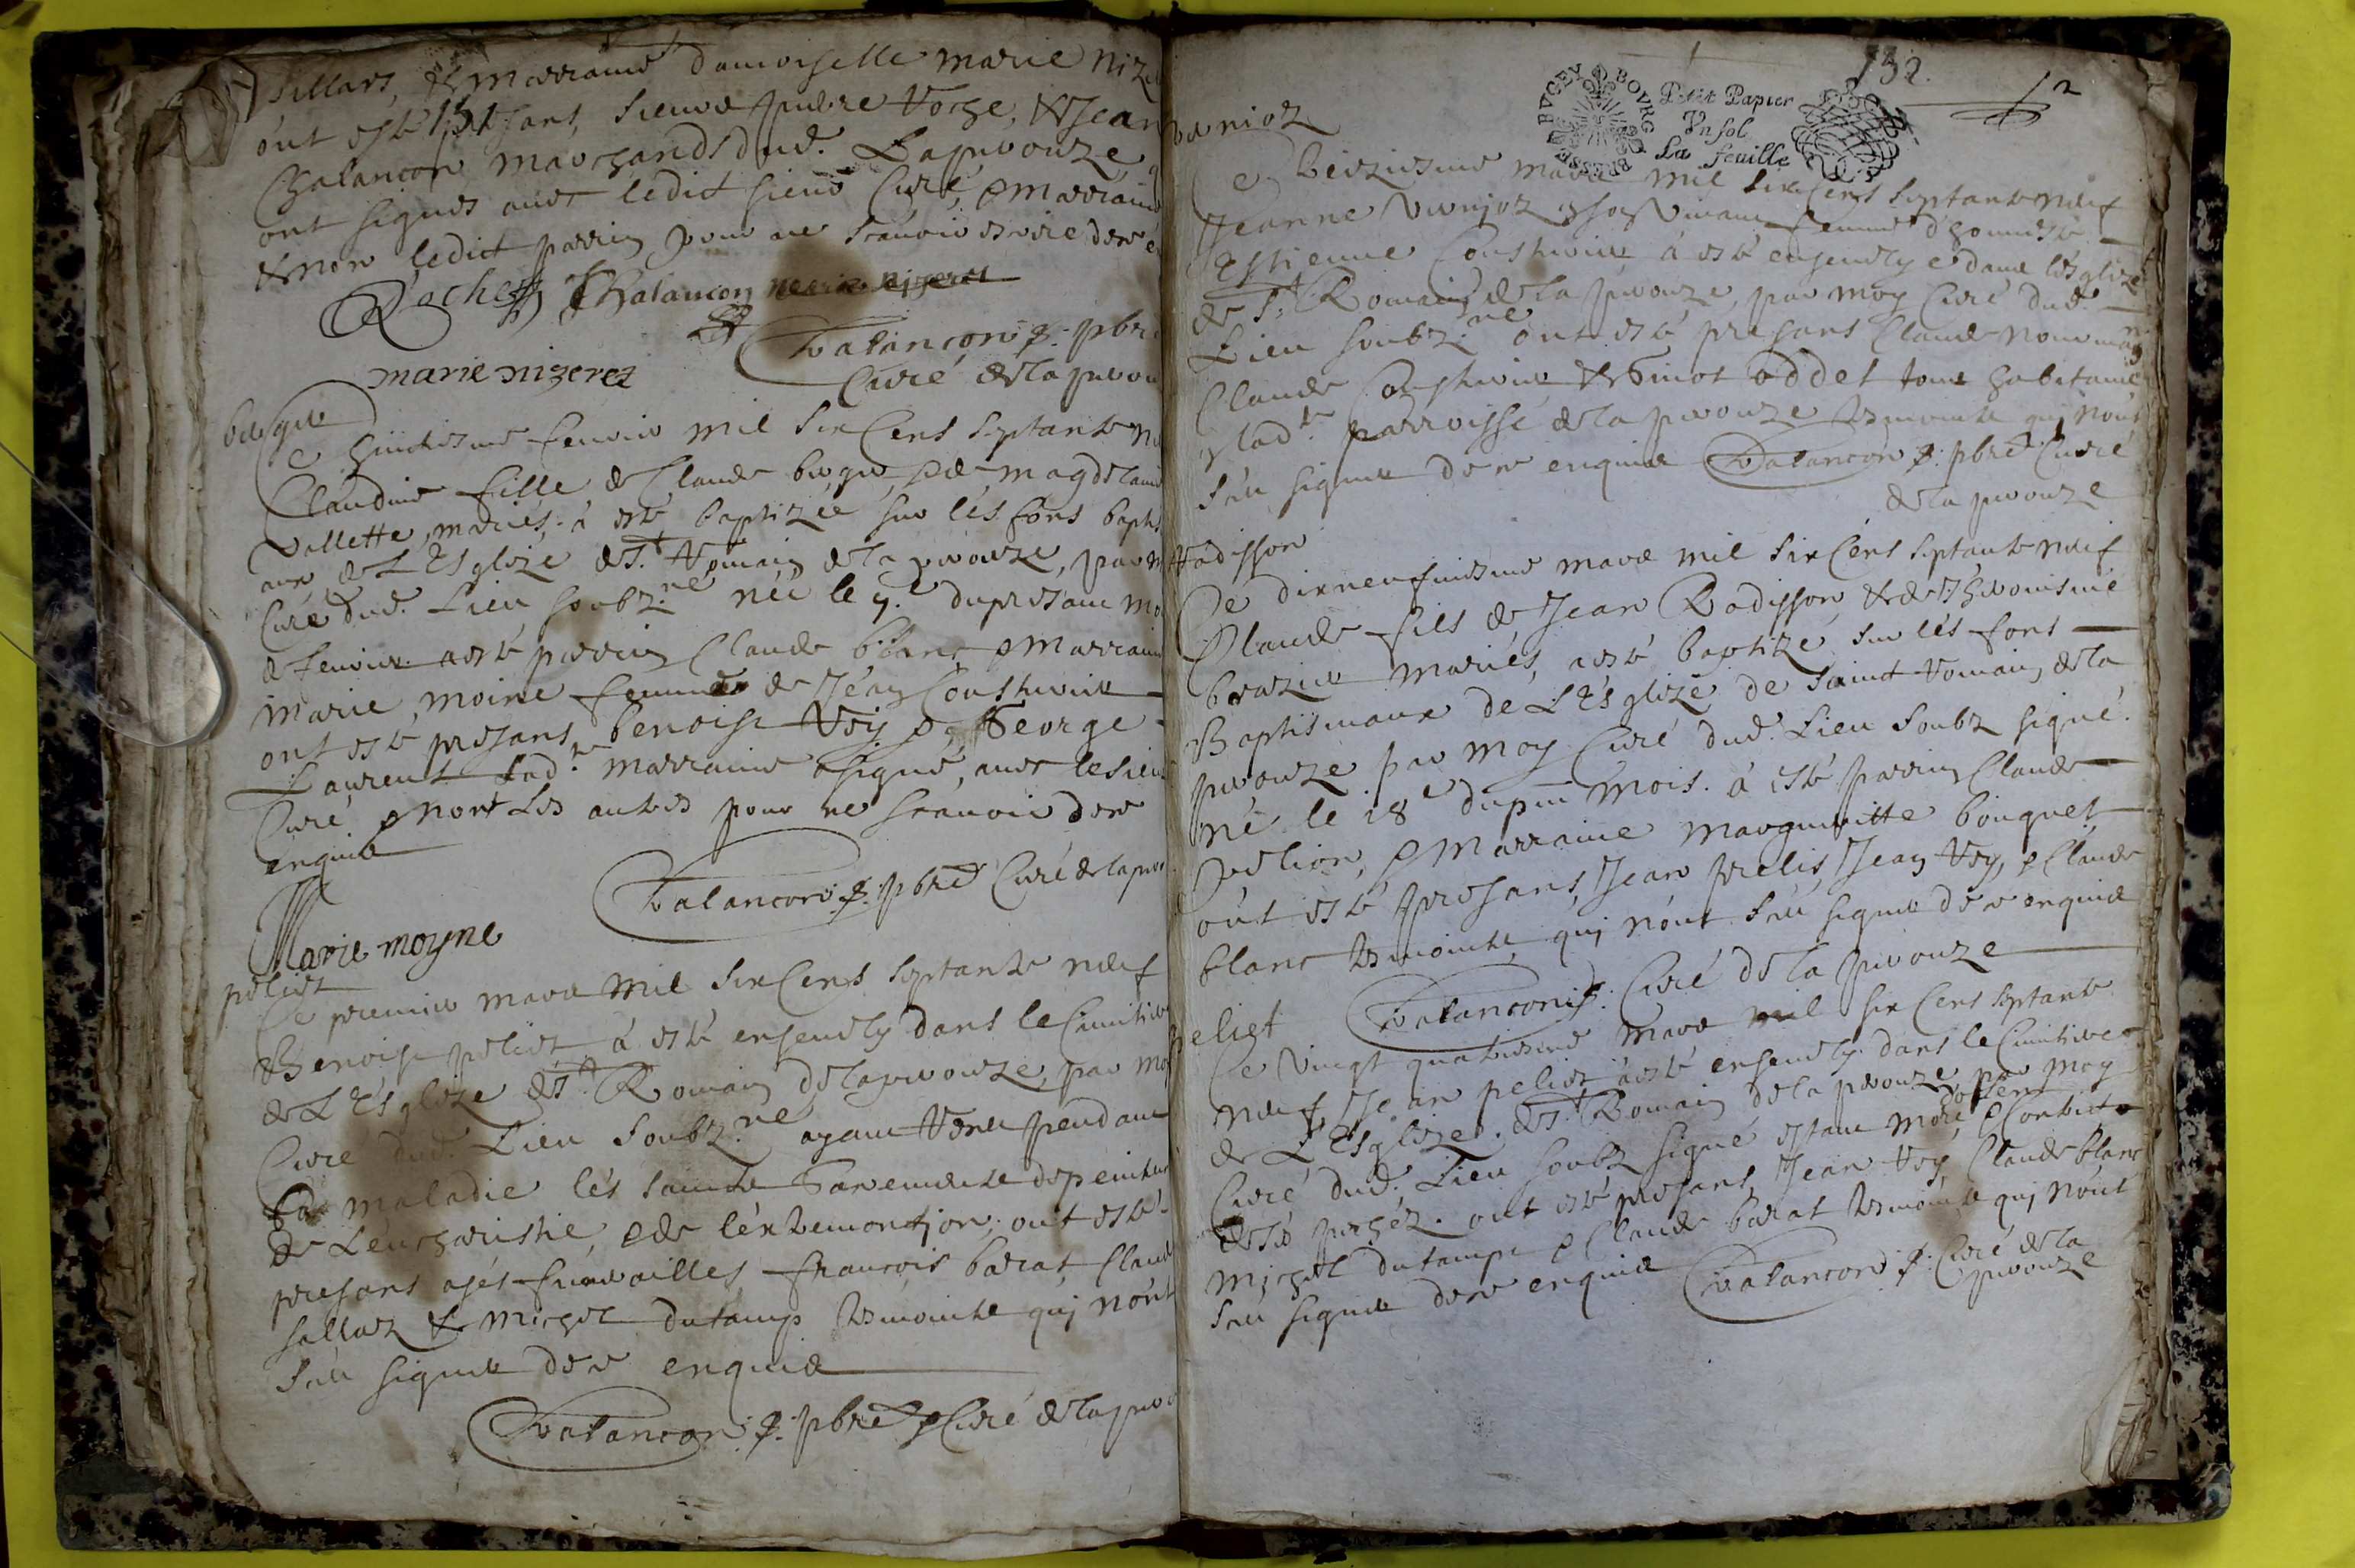 Sillars, & marrainne damoiselle marie niz
ont esté presans, sieurs pierre Roche, & Jean
Chalancon marchands dud. Laperouze
ont signés avec ledict sieur Curé, & marrainne
& non ledict parrin pour ne scavoir escrire de ce
Roche Chalancon marie nizeret
Valancon p. pbre
marie nizeret
Curé de la perou
Ce huictiesme febvrier mil six Cens septante
Claudine fille de Claude & de magdelaine
Vallette, mariés, à esté baptizée sur lés fons baptis
aux de L'Esglize de St. Romain de la perouze, par
Curé dud. Lieu soubz.né née le 7.e du presant mo
de febvrier à esté parrin Claude blanc & marrainne
marie moine femme de Jean
ont esté presans, benoist Rey & George
Laurent lad.te marrainne a signé, avec le sieur
Curé & non les autres pour ne scavoir de ce
enquis
Valancon p. pbre Curé de la per
Marie moyne
peliet
Ce premier mars mil six Cens septante neuf
Benoist peliet à esté ensevely dans le Cimitiere
de L'Esglize de St. Romain de la perouze, par moy
Curé dud. Lieu soubz.né ayant receu pendant
sa maladie lés saints Sacrements de penitence
de Leucharistie, & de léxtremontion, ont esté
presans a sés funerailles francois barat, Claude
sallaz & michel dutamps tesmoints qui nónt
sceu signer de ce enquis
Valancon p. pbre & Curé de la per
132.
12
BRESSE BVGEY BOVRG
Petit Papier
Vn sol
La feuille
Ce treiziesme mars mil six Cens septante neuf
Jeanne en son vivant femme d'honneste
Estienne à esté ensevelye dans lésglize
de St. Romain de la perouze, par moy Curé dud.
Lieu soubz.né ont esté presans Claude
Claude & oddet tous habitants
lad.te parroisse de la perouze tesmoints qui nónt
sceu signer de ce enquis Valancon p. pbre Curé
de la perouze
Radisson
Ce dixneufviesme mars mil six Cens septante neuf
Claude fils de Jean Radisson, & de Thevonisme
brazier mariés, à esté baptizé sur lés fons
Baptismaux de L'Esglize de Sainct Romain, de la
perouze par moy Curé dud. Lieu soubz signé.
né le 18e du pnt mois. à esté parrin Claude
pelion, & marraine margueritte bouquet
ont esté presans, Jean prelis, Jean Rey, & Claude
blanc tesmoints, qui nónt sceu signer de ce enquis
Valancon p. Curé de la perouze
peliet
Ce vingt quatriesme mars mil six Cens septante
neuf Jean peliet à esté ensevely dans le Cimitiere
de L'Esglize de St. Romain de la perouze par moy
Curé dud. Lieu soubz signé estant mort Confés
de sés pechéz. ont esté presans, Jean Rey Claude blanc
michel dutamps & Claude barat tesmoints qui nónt
sceu signer de ce enquis Valancon p. Curé de la
perouze